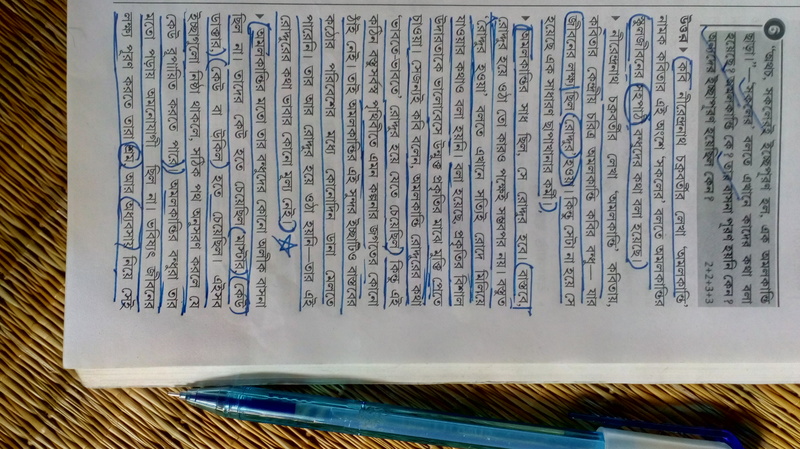 6 "অথচ সকলেরই ইচ্ছেপূরণ হল, এক অমলকান্তি
ছাড়া।"—'সকলের' বলতে এখানে কাদের কথা বলা
হয়েছে? অমলকান্তি কে? তার বাসনা পূরণ হয়নি কেন?
অন্যদের ইচ্ছেপূরণ হয়েছিল কেন? ২+২+৩+৩
উত্তর ▸ কবি নীরেন্দ্রনাথ চক্রবর্তীর লেখা 'অমলকান্তি'
নামক কবিতার এই অংশে 'সকলের' বলতে অমলকান্তির
স্কুলজীবনের সহপাঠী বন্ধুদের কথা বলা হয়েছে।
▸ নীরেন্দ্রনাথ চক্রবর্তীর লেখা 'অমলকান্তি' কবিতায়,
কবিতার কেন্দ্রীয় চরিত্র অমলকান্তি কবির বন্ধু— যার
জীবনের লক্ষ্য ছিল রোদ্দুর হওয়া কিন্তু সেটা না হয়ে সে
হয়েছে এক সাধারণ ছাপাখানার কর্মী।
▸ অমলকান্তির সাধ ছিল, সে রোদ্দুর হবে। বাস্তবে
রোদ্দুর হয়ে ওঠা তো কারও পক্ষেই সম্ভবপর নয়। বস্তুত
'রোদ্দুর হওয়া' বলতে এখানে সত্যিই রোদে মিলিয়ে
যাওয়ার কথাও বলা হয়নি। বলা হয়েছে প্রকৃতির বিশাল
উদারতাকে ভালোবেসে উন্মুক্ত প্রকৃতির মাঝে মুক্তি পেতে
চাওয়া। সেজন্যই কবি বলেন, অমলকান্তি রোদ্দুরের কথা
ভাবতে ভাবতে রোদ্দুর হয়ে যেতে চেয়েছিল। কিন্তু এই
কঠিন বস্তুসর্বস্ব পৃথিবীতে এমন কল্পনার জগতের কোনো
ঠাঁই নেই। তাই অমলকান্তির এই সুন্দর ইচ্ছাটিও বাস্তবের
কঠোর পরিবেশের মধ্যে কোনোদিন ডানা মেলতে
পারেনি তার আর রোদ্দুর হয়ে ওঠা হয়নি—তার এই
রোদ্দুরের কথা ভাবার কোনো মূল্য নেই।
▸ অমলকান্তির মতো তার বন্ধুদের কোনো অলীক বাসনা
ছিল না। তাদের কেউ হতে চেয়েছিল মাস্টার, কেউ
ডাক্তার, কেউ বা উকিল হতে চেয়েছিল। এইসব
ইচ্ছাগুলো নিষ্ঠা থাকলে, সঠিক পথ অনুসরণ করলে যে
কেউ রূপায়িত করতে পারে। অমলকান্তির বন্ধুরা তার
মতো পড়ায় অমনোযোগী ছিল না। ভবিষ্যৎ জীবনের
লক্ষ্য পূরণ করতে তারা শ্রম আর অধ্যবসায় নিয়ে সেই